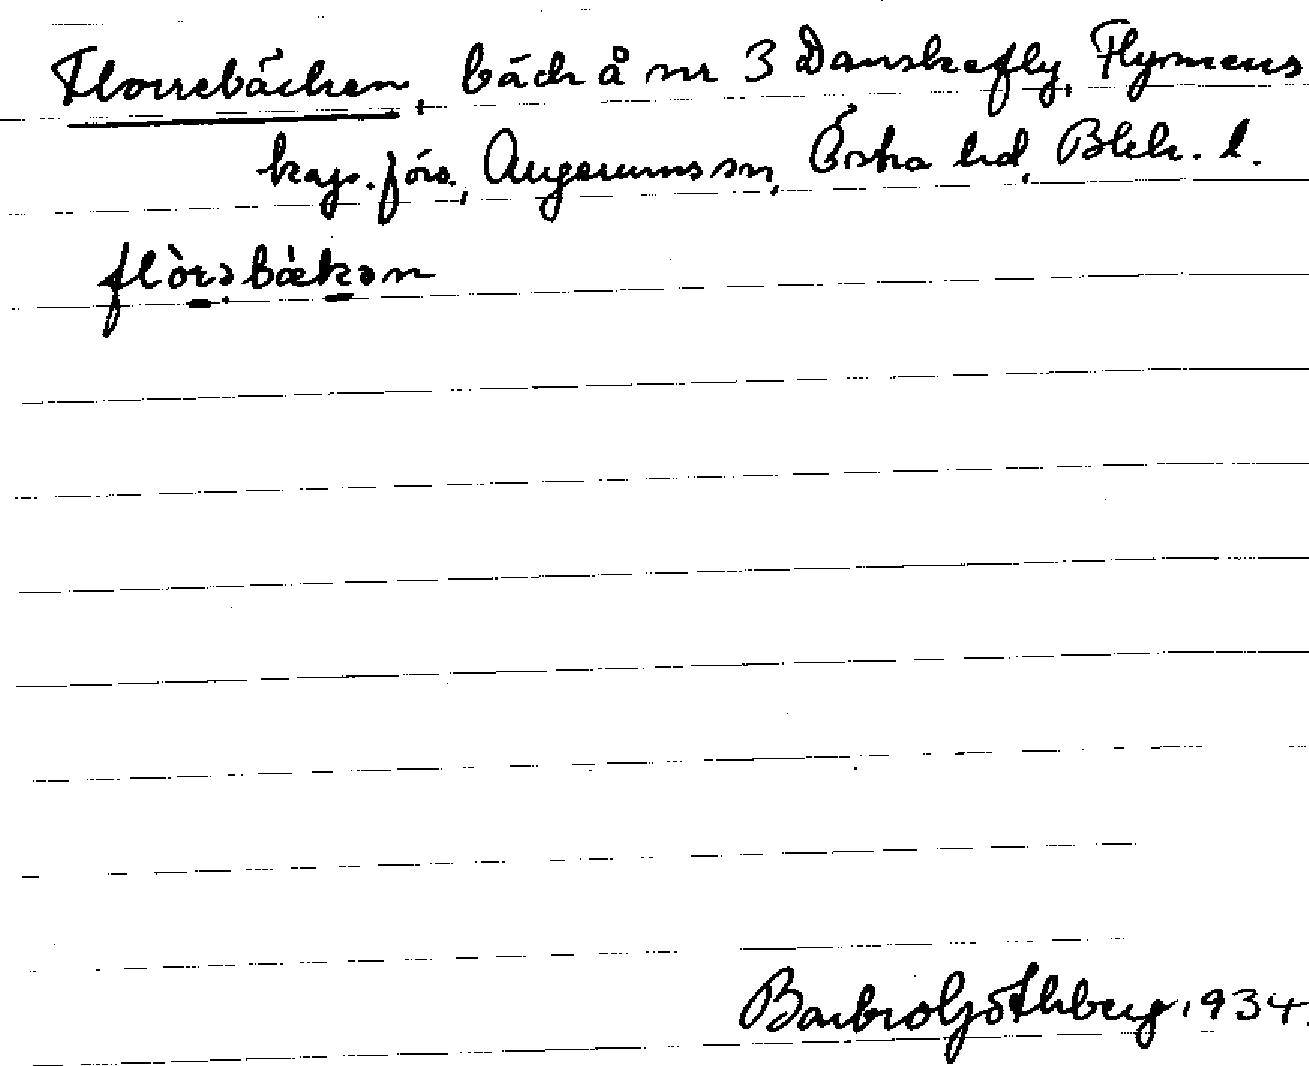 Florrebäcken, bäck å nr 3 Danskefly, Flymens
kap.förs., Augerums sn, Östra hd, Blek. l.
flòrəbǽkən
Barbro Göthberg 1934.